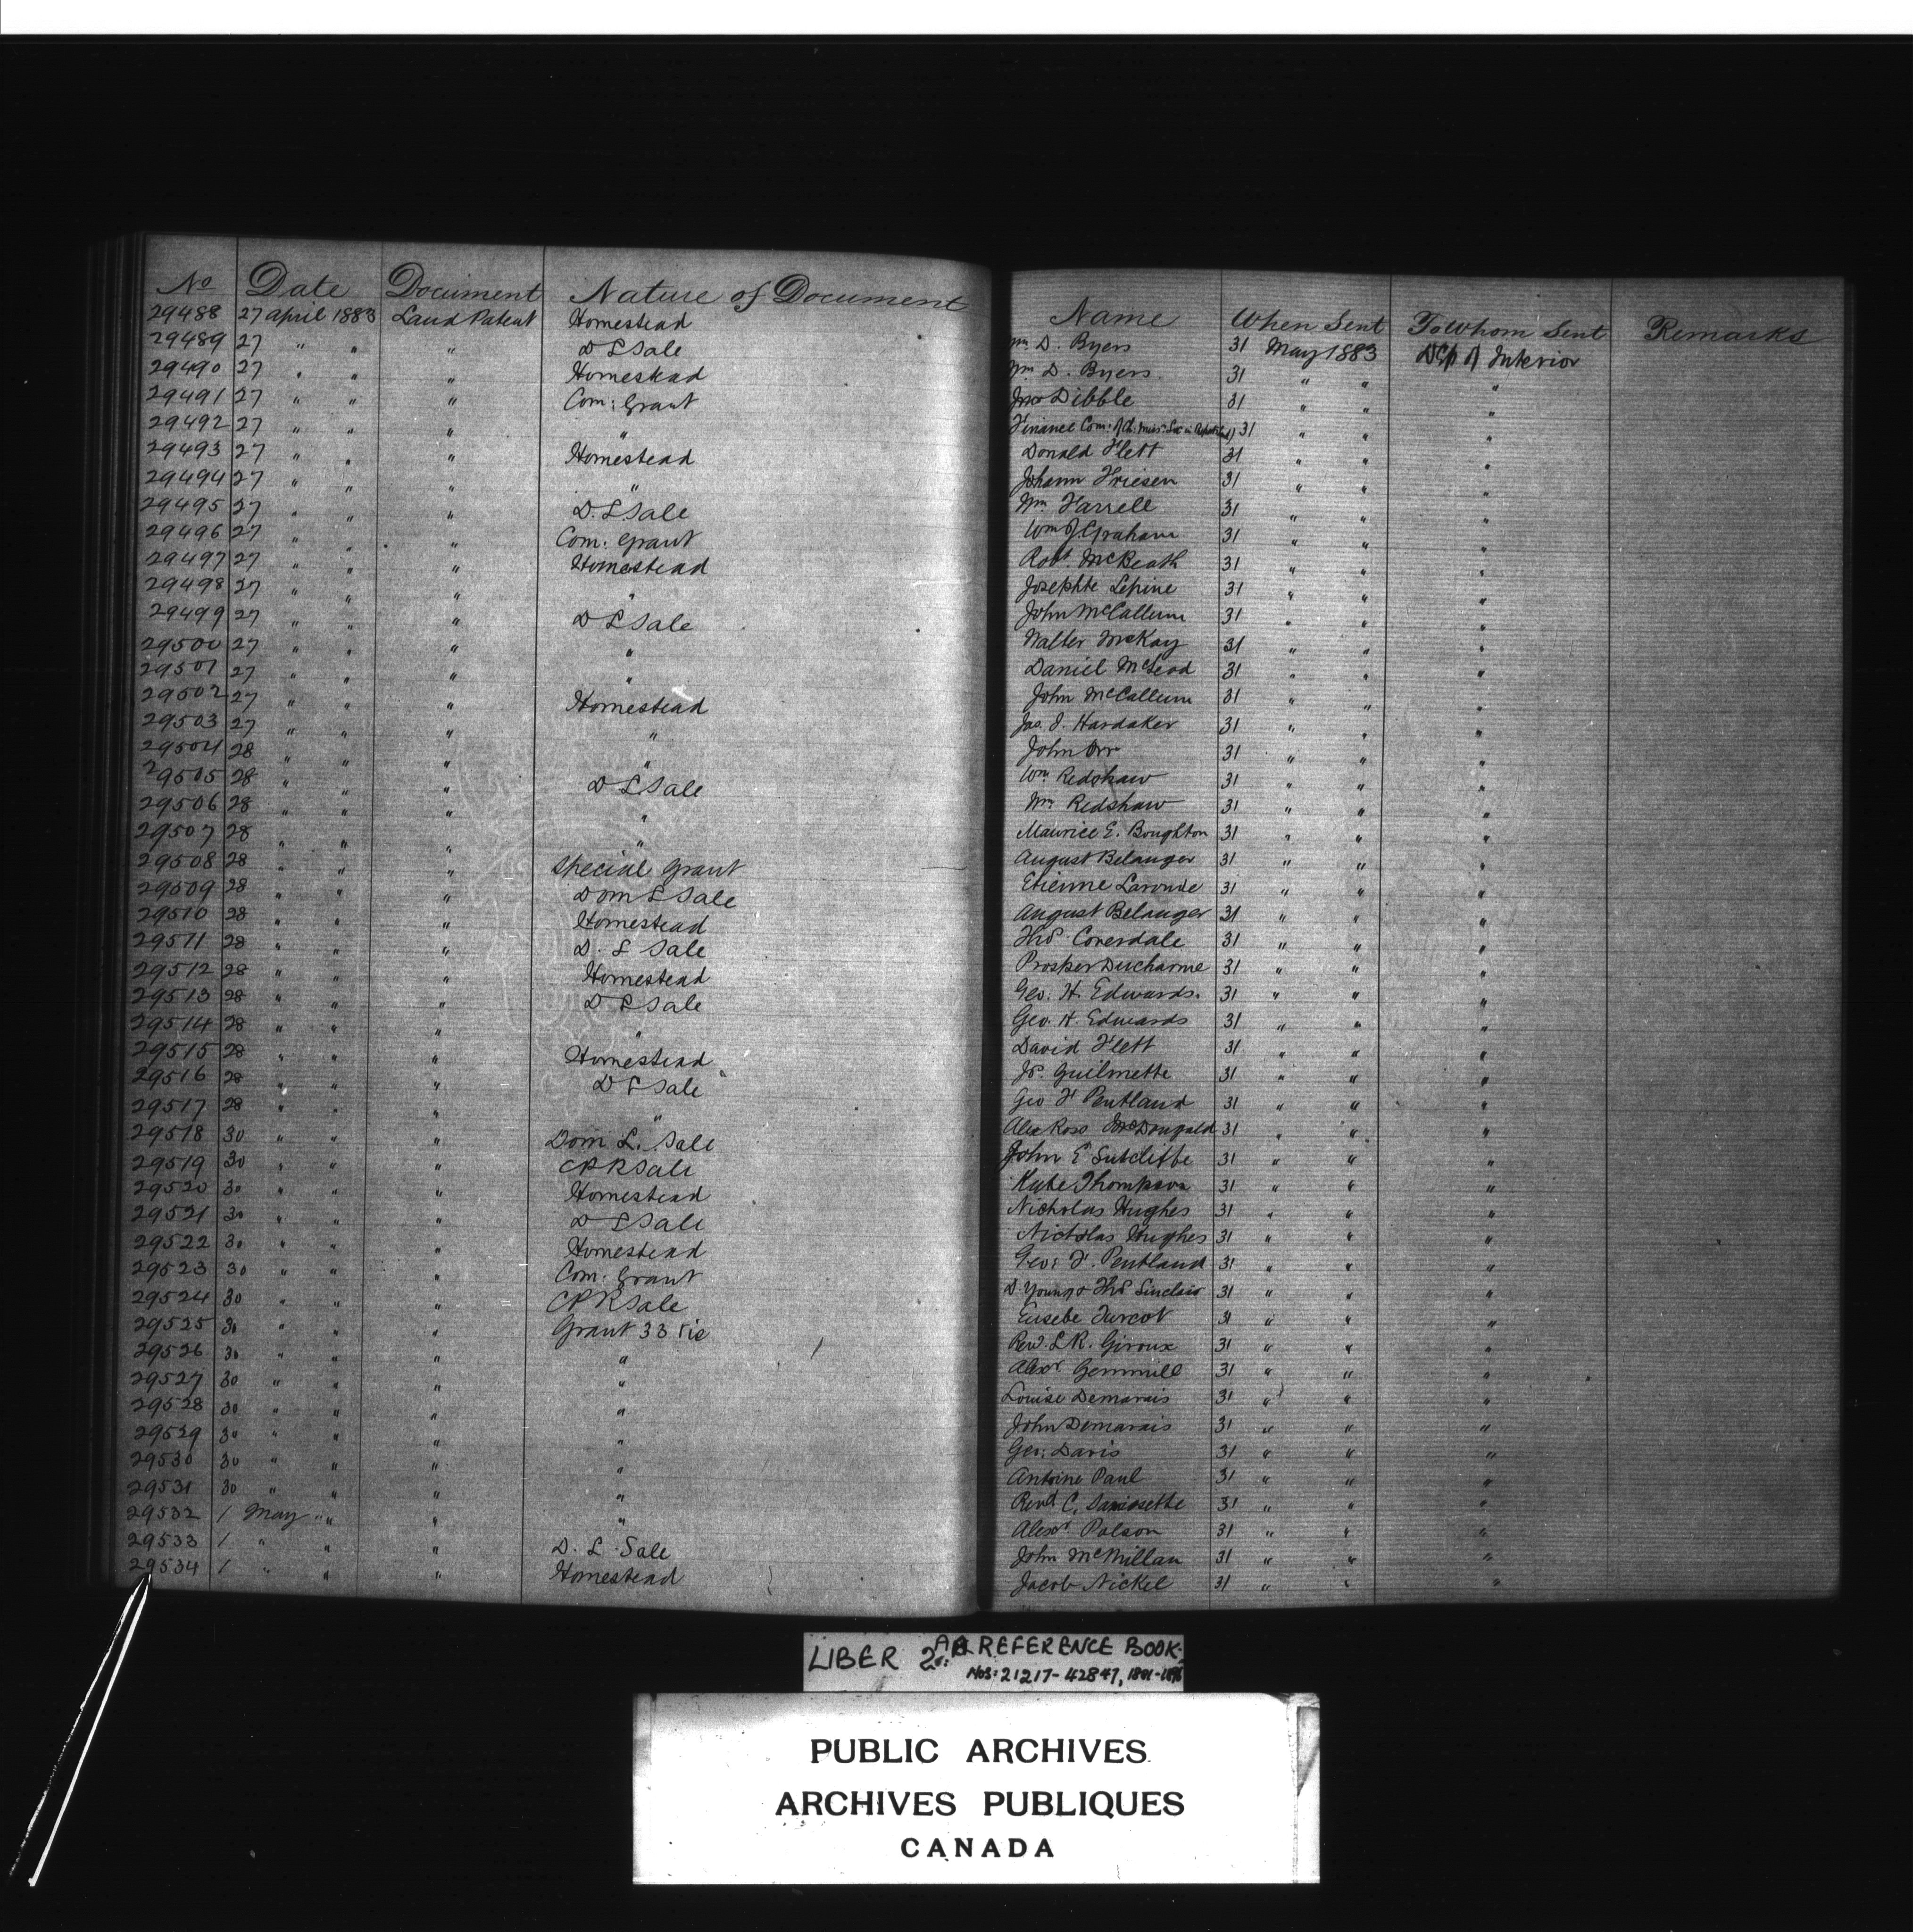 No Date Document Nature of Document Name When Sent To Whom Sent Remarks
29488 27 April 1883 Land Patent Homestead Wm D. Byers 31 May 1883 Dep of Interior
29489 27 " " " D L Sale Wm D. Byers 31 " " "
29490 27 " " " Homestead Jno Dibble 31 " " "
29491 27 " " " Com: Grant Finance Com: of Ch: Miss: Soc in 31 " " "
29492 27 " " " " Donald Flett 31 " " "
29493 27 " " " Homestead Johann Friesen 31 " " "
29494 27 " " " " Wm Farrell 31 " " "
29495 27 " " " D. L Sale Wm J. Graham 31 " " "
29496 27 " " " Com: Grant Robt McBeath 31 " " "
29497 27 " " " Homestead Josephte Lepine 31 " " "
29498 27 " " " " John McCallum 31 " " "
29499 27 " " " D L Sale Walter McKay 31 " " "
29500 27 " " " " Daniel McLeod 31 " " "
29501 27 " " " " John McCallum 31 " " "
29502 27 " " " Homestead Jas. J. Hardaker 31 " " "
29503 27 " " " " John Orr 31 " " "
29504 28 " " " " Wm Redshaw 31 " " "
29505 28 " " " D L Sale Wm Redshaw 31 " " "
29506 28 " " " " Maurice E. Boughton 31 " " "
29507 28 " " " " August Belanger 31 " " "
29508 28 " " " Special Grant Etienne Laronde 31 " " "
29509 28 " " " Dom L Sale August Belanger 31 " " "
29510 28 " " " Homestead Thos Coverdale 31 " " "
29511 28 " " " D. L Sale Prosper Ducharme 31 " " "
29512 28 " " " Homestead Geo. H. Edwards. 31 " " "
29513 28 " " " D L Sale Geo. H. Edwards 31 " " "
29514 28 " " " " David Flett 31 " " "
29515 28 " " " Homestead Js. Guilmette 31 " " "
29516 28 " " " D L Sale Geo F Pentland 31 " " "
29517 28 " " " " Alex Ross McDougald 31 " " "
29518 30 " " " Dom L. Sale John E Sutcliffe 31 " " "
29519 30 " " " CPR Sale Kate Thompson 31 " " "
29520 30 " " " Homestead Nicholas Hughes 31 " " "
29521 30 " " " D L Sale Nicholas Hughes 31 " " "
29522 30 " " " Homestead Geo: F. Pentland 31 " " "
29523 30 " " " Com: Grant D Young & Thos Sinclair 31 " " "
29524 30 " " " CPR Sale Eusebe Turcot 31 " " "
29525 30 " " " Grant 33 Vic Revd. L R. Giroux 31 " " "
29526 30 " " " " Alexr. Gemmill 31 " " "
29527 30 " " " " Louise Demarais 31 " " "
29528 30 " " " " John Demarais 31 " " "
29529 30 " " " " Geo: Davis 31 " " "
29530 30 " " " " Antoine Paul 31 " " "
29531 30 " " " " Revd C, 31 " " "
29532 1 May " " " " Alexr Polson 31 " " "
29533 1 " " " D. L. Sale John McMillan 31 " " "
29534 1 " " " Homestead Jacob Nickel 31 " " "
LIBER 2 REFERENCE BOOK:
Nos: 21217-42847,
PUBLIC ARCHIVES
ARCHIVES PUBLIQUES
CANADA